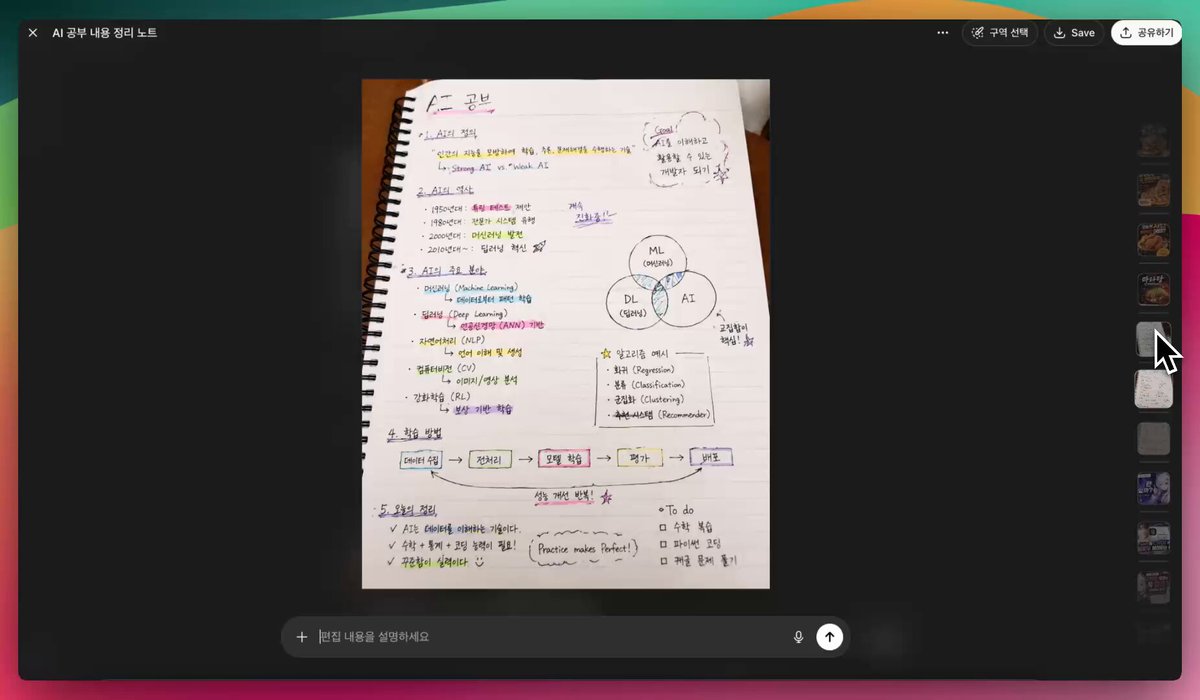 AI 공부 내용 정리 노트
구역 선택
Save
공유하기
AI 공부
1. AI의 정의
"인간의 지능을 모방하여 학습, 추론, 문제해결을 수행하는 기술"
Strong AI vs. Weak AI
Goal
AI를 이해하고
활용할 수 있는
개발자 되기
2. AI의 역사
· 1950년대: 튜링 테스트 제안
· 1980년대: 전문가 시스템 유행
· 2000년대: 머신러닝 발전
· 2010년대~: 딥러닝 혁신
계속
진화중!!
3. AI의 주요 분야
· 머신러닝 (Machine Learning)
데이터로부터 패턴 학습
· 딥러닝 (Deep Learning)
인공신경망 (ANN) 기반
· 자연어처리 (NLP)
언어 이해 및 생성
· 컴퓨터비전 (CV)
이미지/영상 분석
· 강화학습 (RL)
보상 기반 학습
ML
(머신러닝)
DL
(딥러닝)
AI
교집합이
핵심!
알고리즘 예시
· 회귀 (Regression)
· 분류 (Classification)
· 군집화 (Clustering)
· 추천 시스템 (Recommender)
4. 학습 방법
데이터 수집 → 전처리 → 모델 학습 → 평가 → 배포
성능 개선 반복!
5. 오늘의 정리
✓ AI는 데이터를 이해하는 기술이다.
✓ 수학 + 통계 + 코딩 능력이 필요!
✓ 꾸준함이 실력이다
Practice makes Perfect!
To do
수학 복습
파이썬 코딩
캐글 문제 풀기
편집 내용을 설명하세요